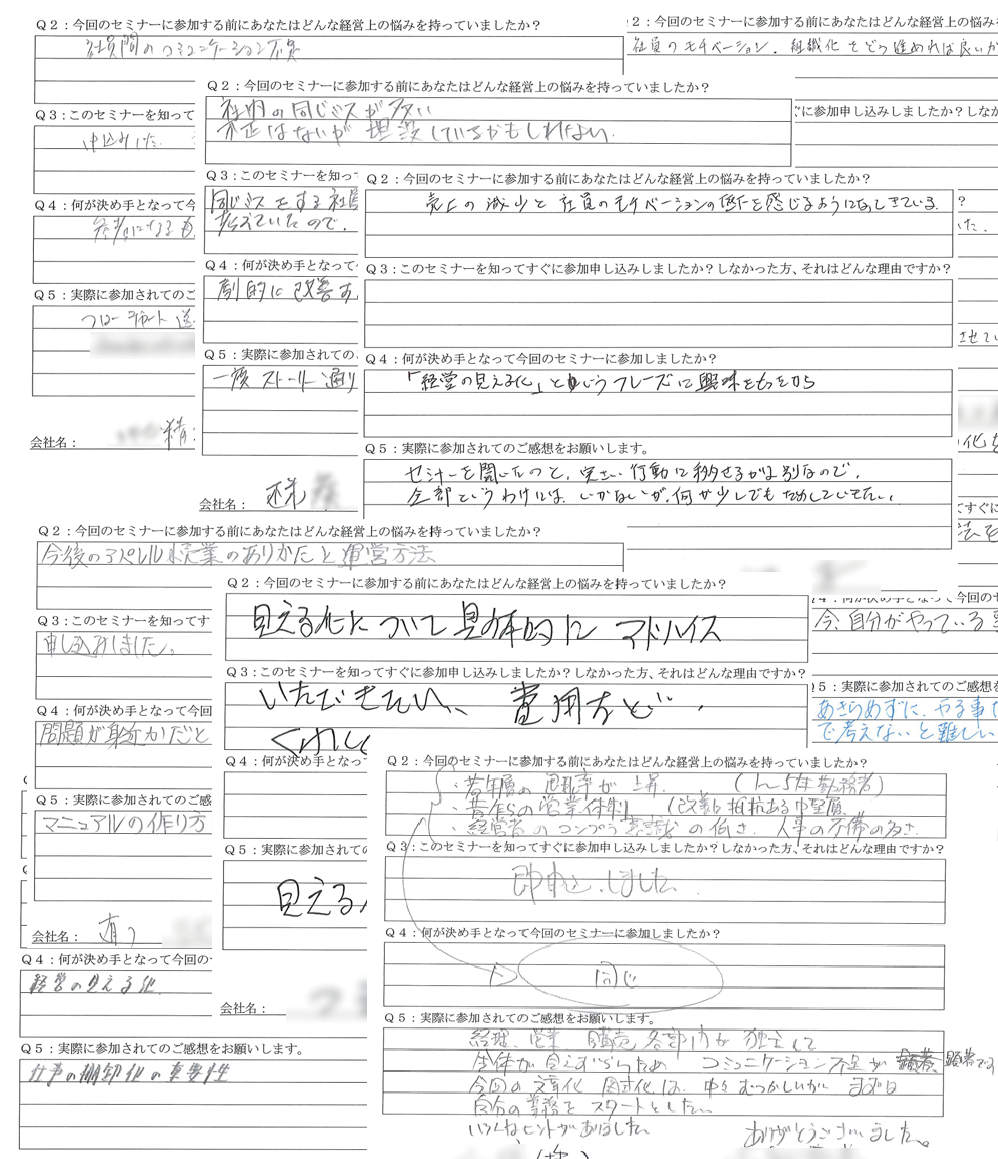 Q2：今回のセミナーに参加する前にあなたはどんな経営上の悩みを持っていましたか？
社員間のコミュニケーション不足
Q3：このセミナーを知って
申込みした
Q4：何が決め手となって今
参考になる
Q5：実際に参加されてのご
フローチャート
会社名：
Q2：今回のセミナーに参加する前にあなたはどんな経営上の悩みを持っていましたか？
社内の同じミスが多い
不正はないが埋没しているかもしれない
Q3：このセミナーを知っ
同じミスをする社員
考えていたので。
Q4：何が決め手となって
劇的に改善す
Q5：実際に参加されての
一度ストーリー通り
会社名：
2：今回のセミナーに参加する前にあなたはどんな経営上の悩み
社員のモチベーション、組織化をどう進めれば良いか
ぐに参加申し込みしましたか？しなか
Q2：今回のセミナーに参加する前にあなたはどんな経営上の悩みを持っていましたか？
売上の減少と社員のモチベーションの低下を感じるようになってきている
Q3：このセミナーを知ってすぐに参加申し込みしましたか？しなかった方、それはどんな理由ですか？
Q4：何が決め手となって今回のセミナーに参加しましたか？
「経営の見える化」というフレーズに興味をもったから
Q5：実際に参加されてのご感想をお願いします。
セミナーを聞いたのと、実さい行動に移せるかは別なので、
全部というわけには、いかないが、何か少しでもためしていきたい。
Q2：今回のセミナーに参加する前にあなたはどんな経営上の悩みを持っていましたか？
今後のアパレル営業のありかたと運営方法
Q3：このセミナーを知ってす
申し込みしました。
Q4：何が決め手となって今回
問題が身近かだと
Q5：実際に参加されてのご感
マニュアルの作り方
会社名：
Q4：何が決め手となって今回の
経営の見える化
Q5：実際に参加されてのご感想をお願いします。
仕事の棚卸化の重要性
Q2：今回のセミナーに参加する前にあなたはどんな経営上の悩みを持っていましたか？
見える化について具体的にアドバイス
Q3：このセミナーを知ってすぐに参加申し込みしましたか？しなかった方、それはどんな理由ですか？
いただきたい、費用など、
くわしく
Q4：何が決め手となっ
Q5：実際に参加されての
見える
会社名：
4：何が決め手となって今回のセ
今、自分がやっている事
5：実際に参加されてのご感想を
あきらめずに、やる事
で考えないと難しい
Q2：今回のセミナーに参加する前にあなたはどんな経営上の悩みを持っていましたか？
・若年層の退職率が上昇 （1〜5年勤務者）
・昔ながらの営業体制 （改善に抵抗ある中堅層
・経営者のコンプラ意識の低さ、人事の不備の多さ
Q3：このセミナーを知ってすぐに参加申し込みしましたか？しなかった方、それはどんな理由ですか？
即申込しました
Q4：何が決め手となって今回のセミナーに参加しましたか？
同じ
Q5：実際に参加されてのご感想をお願いします。
経理、営業、購売各部門が独立して
全体が見えずらいため コミュニケーション不足が顕著です
今回の文章化 図式化は、中々むつかしいが まずは
自分の業務をスタートとしたい。
いろんなヒントがありました。 ありがとうございました。